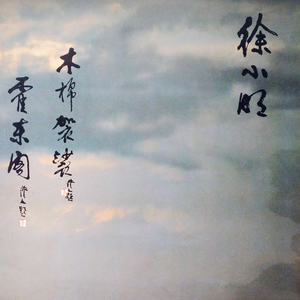 徐小明
木棉袈裟
霍东阁